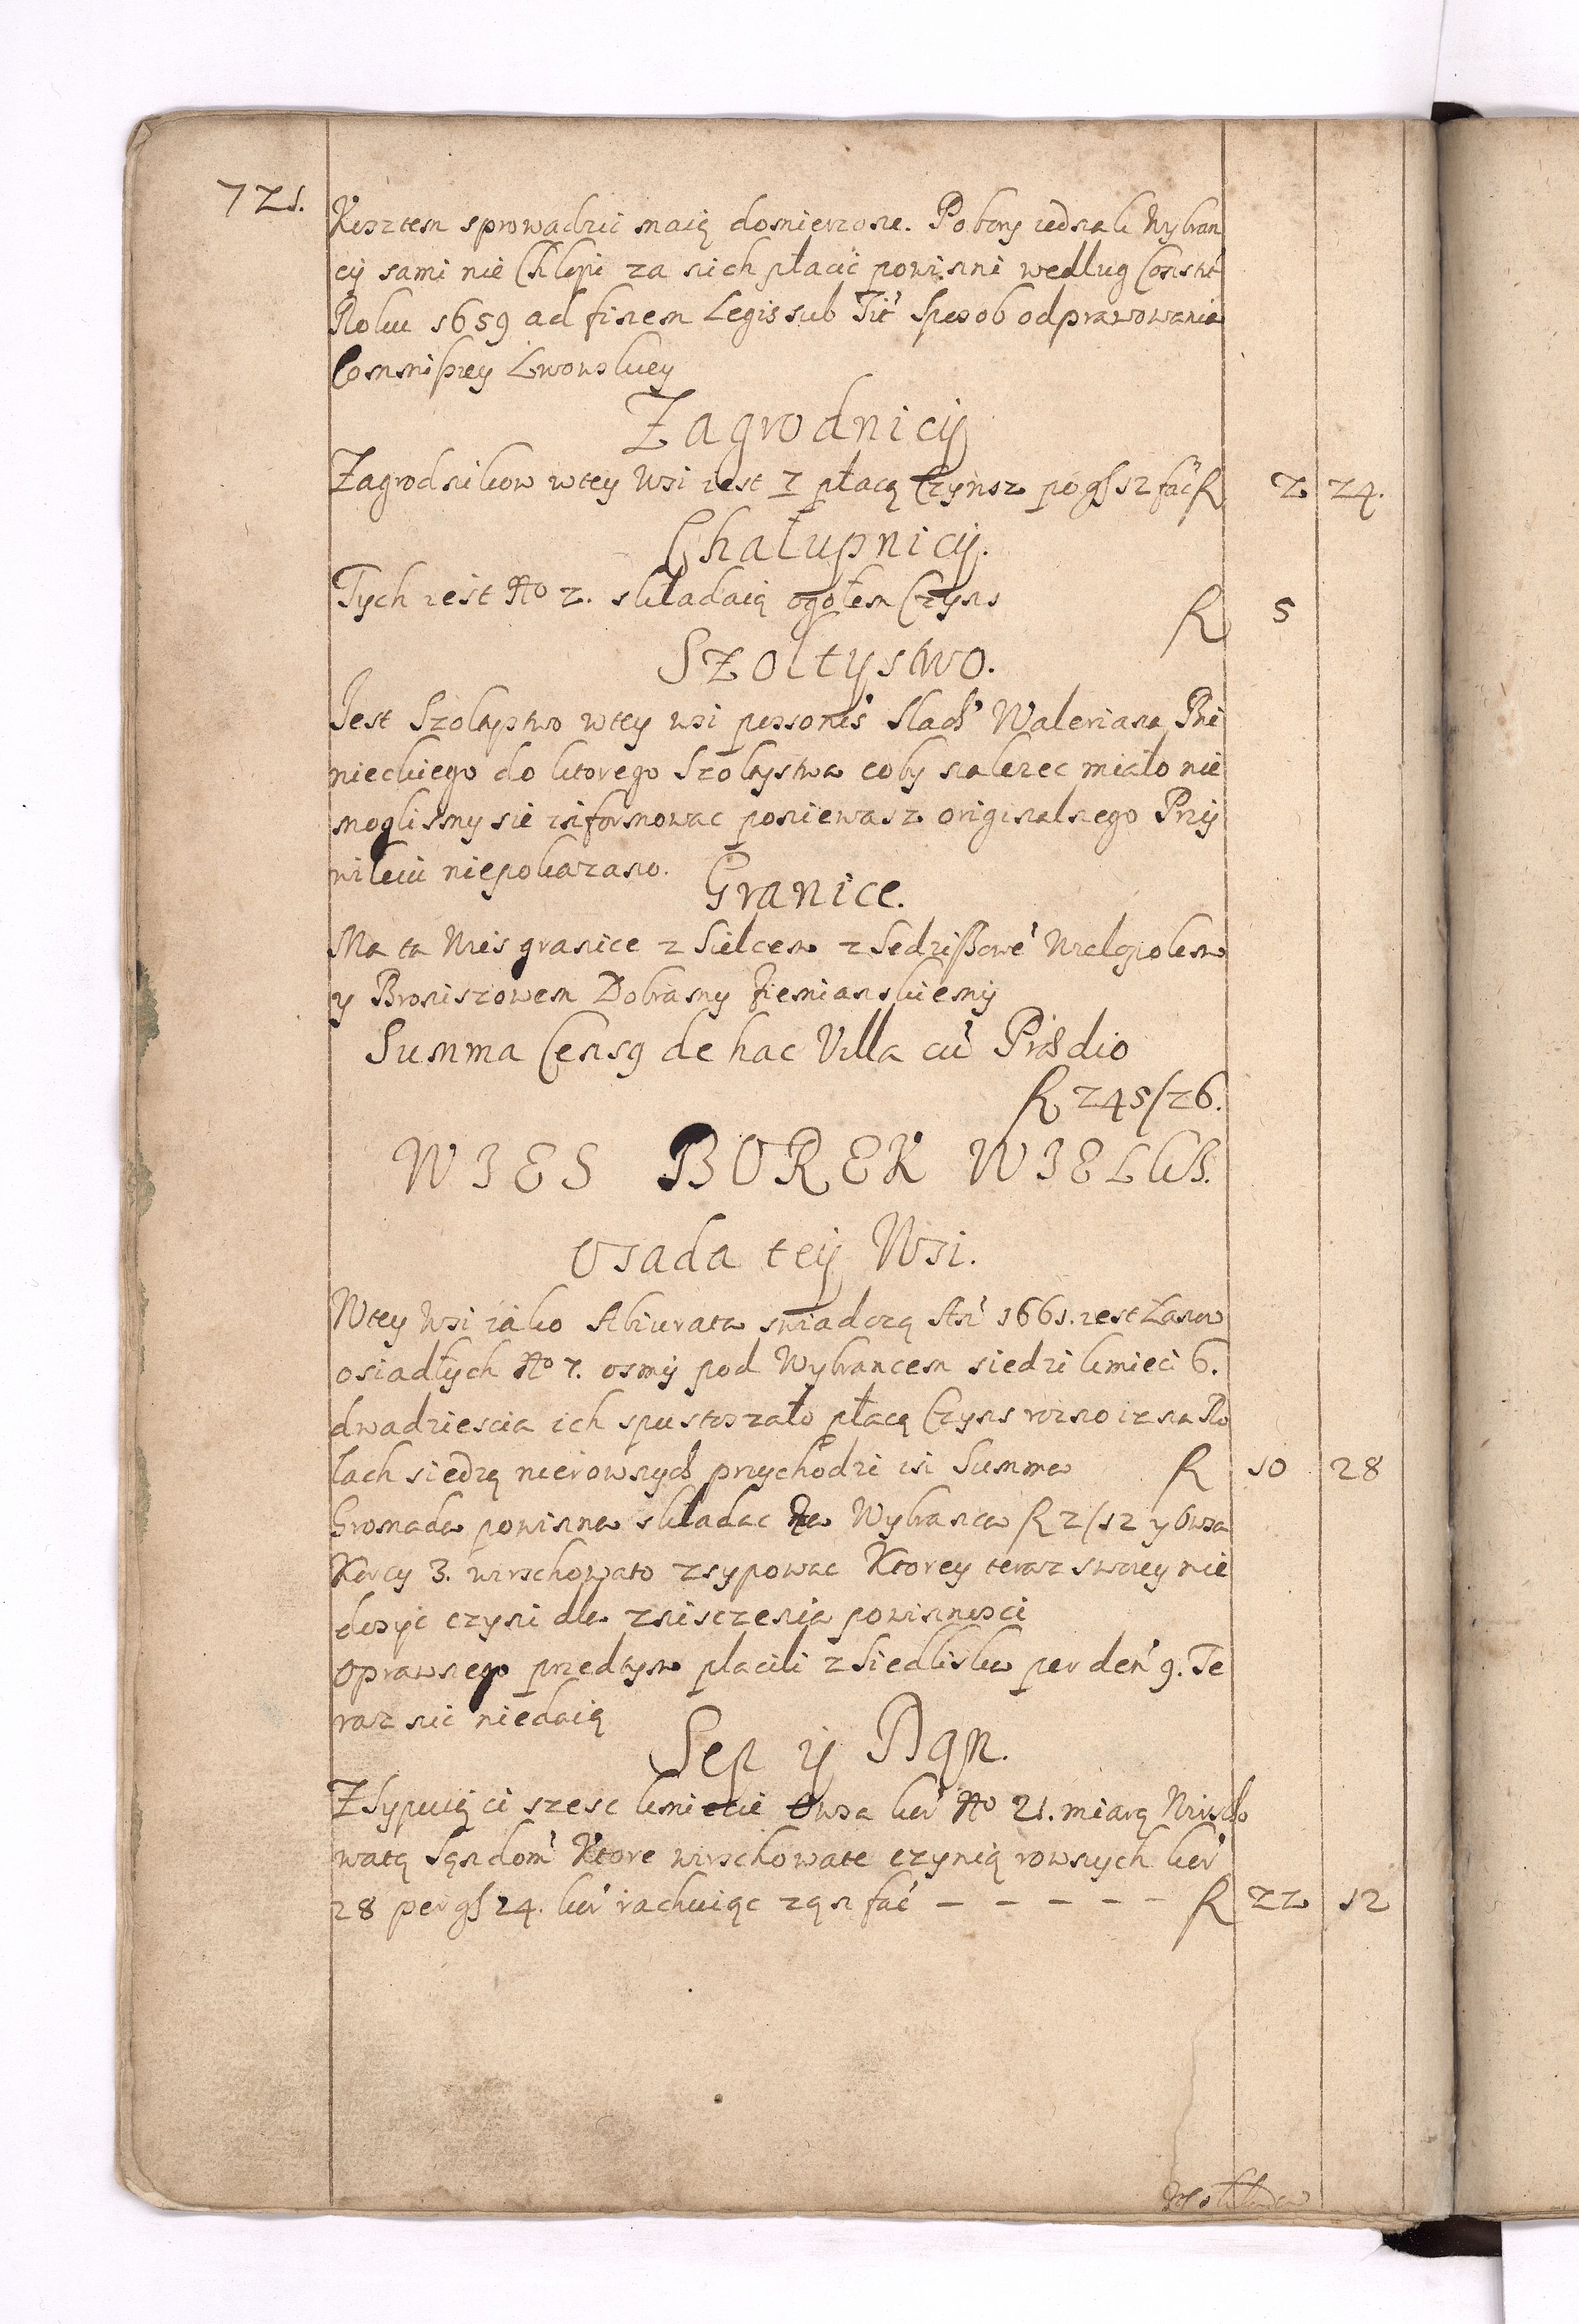 721.
Kosztem sprowadzic maią domierzone. Pobory iednak Wybran
cy sami nie Chłopi za nich płacić powinni według Constit
Roku 1659 ad finem Legis sub Tit Sposob odprawowania
Commissiey Lwowskiey
Zagrodnicy
Zagrodnikow wtey Wsi iest 7 płacą Czynsz po gs 12 fac R 2 24.
Chałupnicy.
Tych iest No 2. składaią ogołem Czyns R 5
Szołtystwo.
Jest Szołtystwo wtey wsi possonis Nad Waleriana Pni
nieckiego do ktorego Szołtystwa coby nalezec miało nie
moglismy sie informowac poniewasz originalnego Przy
wileiu niepokazano.
Granice.
Ma ta Wies granice z Sielcem z Sedzissowe Wielgopolem
y Broniszowem Dobramy Ziemianskiemy
Summa Censq de hac Villa cu Prædio
R 245/26.
WIES BOREK WIELKI.
Osada tey Wsi.
Wtey Wsi iako Abiurata swiadczą An 1661. iest Łanow
osiadłych No 7. osmy pod Wybrancem siedzi kmieci 6.
dwadziescia ich spustoszało płacą Czyns rozno iz na Ro
lach siedzą nierownych przychodzi in Summa R 10 28
Gromada powinna składac na Wybranca R 2/12 y Owsa
Korcy 3. wirzchowato zsypowac Ktorey teraz swoiey nie
dosyc czyni dla znisczenia powinnosci
Oprawnego przedtym placili z Siedliska per den 9. Te
raz nic niedaią
Sep y Dan.
Zsypuią ci szesc kmiecie Owsa kor No 21. miarą Wirzcho
watą Sandom Ktore wirzchowate czynią rownych kor
28 per gs 24. kor rachuiąc zan fac – – – – – R 22 12